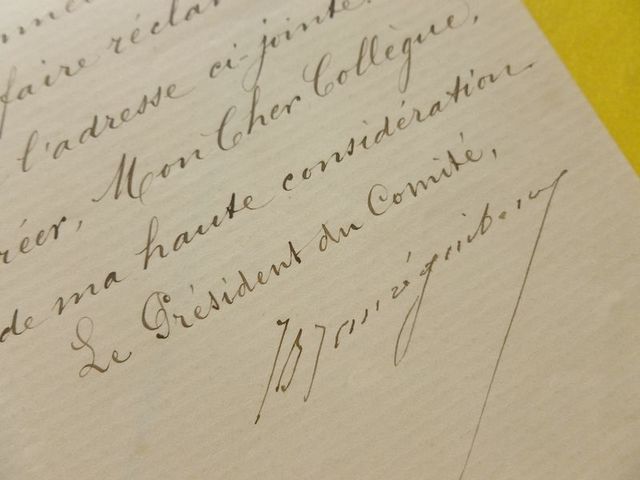 faire réclam
l'adresse ci-jointe.
réer, Mon Cher Collègue,
de ma haute considération
Le Président du Comité,